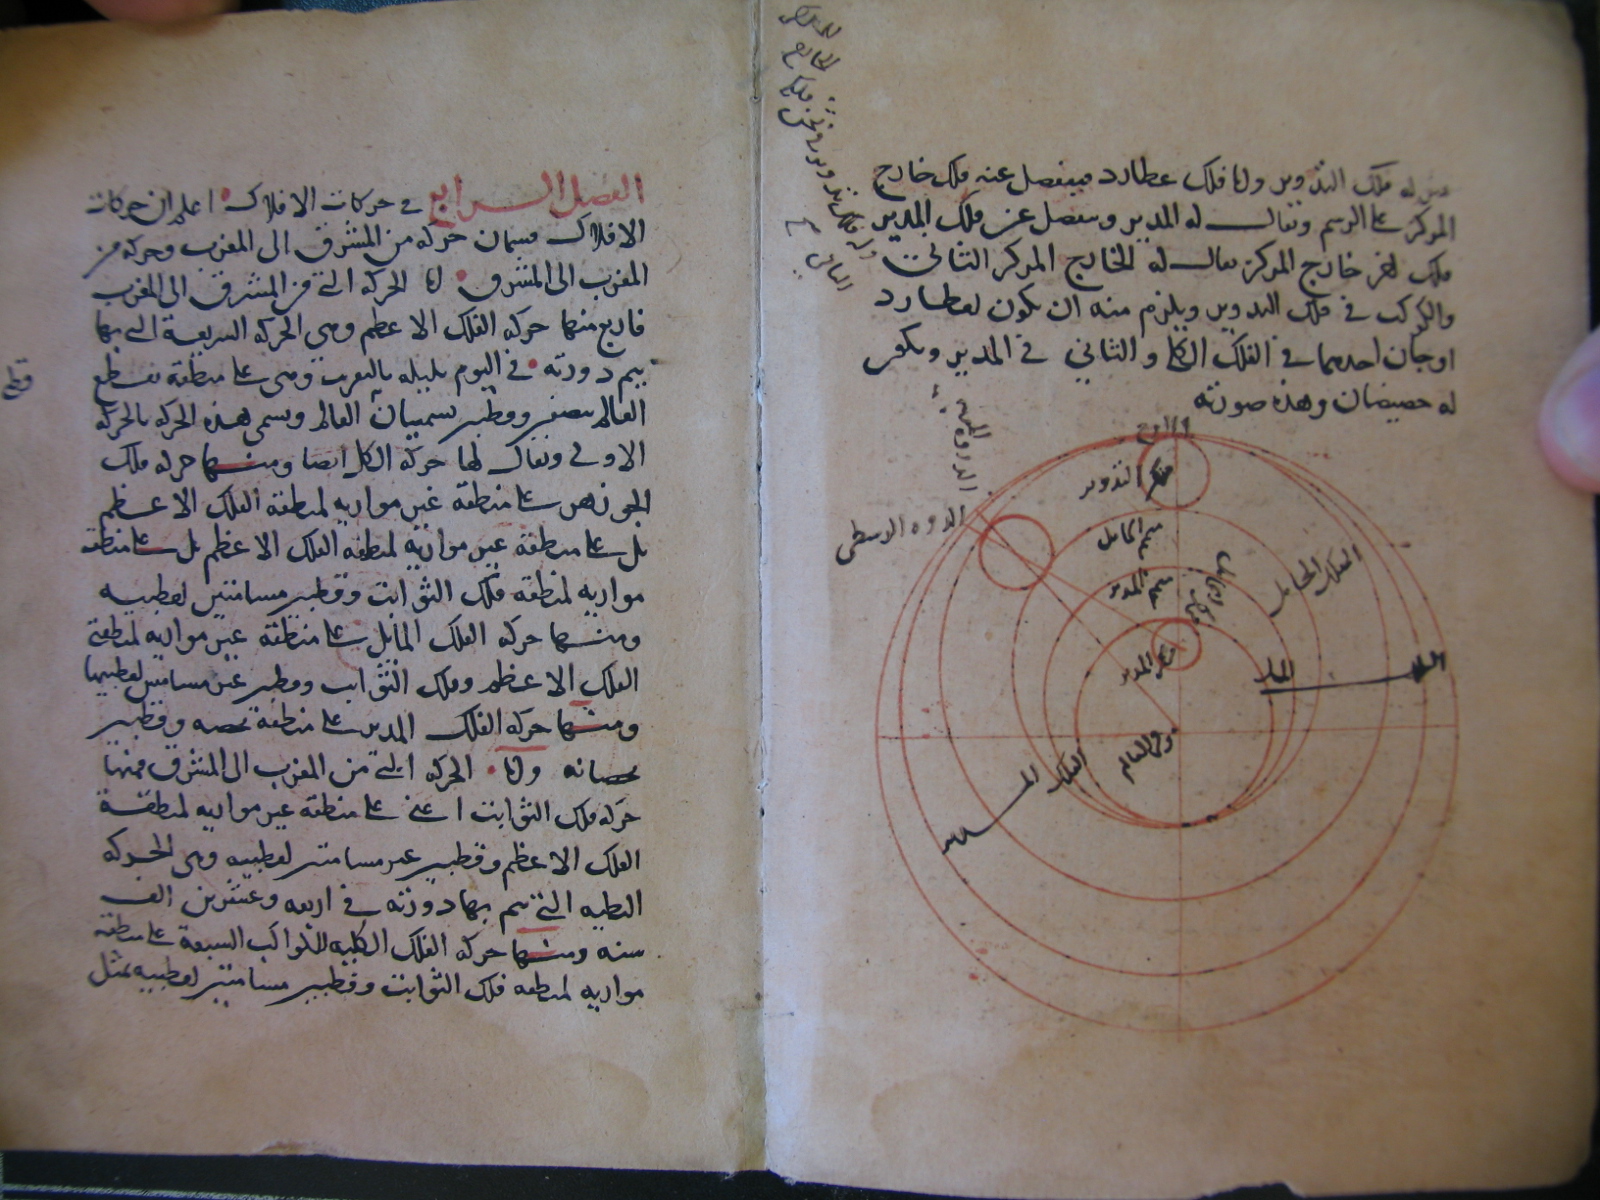 له فلك التدوير واما فلك عطارد فينفصل عنه فلك خارج
المركز على الرسم ويقال له المدير وينفصل عن فلك المدير
فلك اخر خارج المركز يقال له الخارج المركز الثاني
والكوكب في فلك التدوير ويلزم منه ان يكون لعطارد
اوجان احدهما في الفلك الكلي والثاني في المدير ويكون
له حضيضان وهذه صورته
الاوج
مركز التدوير
الذروه المرئيه
الذروه الوسطى
الفلك الحامل
مركز المدير
مركز العالم
الفلك
المايل
الفصل الرابع في حركات الافلاك اعلم ان حركات
الافلاك قسمان حركة من المشرق الى المغرب وحركه من
المغرب الى المشرق اما الحركة التي من المشرق الى المغرب
فاربع منها حركة الفلك الاعظم وهي الحركة السريعة التي بها
يتم دورته في اليوم بليله بالتقريب وهي على منطقة تقطع
العالم بنصفين وقطبين يسميان العالم ويسمى هذه الحركة بالحركة
الاولى ويقال لها حركة الكل ايضا ومنها حركة فلك
الجوزهر على منطقة غير موازيه لمنطقة الفلك الاعظم
بل على منطقة غير موازيه لمنطقه الفلك الاعظم بل على منطقة
موازيه لمنطقة فلك الثوابت وقطبين مسامتين لقطبيه
ومنها حركه الفلك المايل على منطقة غير موازيه لمنطقتي
الفلك الاعظم وفلك الثوابت وقطبين غير مسامتين لقطبيهما
ومنها حركه الفلك المدير على منطقة تخصه وقطبين
يخصانه واما الحركه التي من المغرب الى المشرق فمنها
حركه فلك الثوابت اعني على منطقة غير موازيه لمنطقة
الفلك الاعظم وقطبين غير مسامتين لقطبيه وهي الحركه
البطيه التي تتم بها دورته في اربعه وعشرين الف
سنه ومنها حركه الفلك الكليه للكواكب السبعة على منطقة
موازيه لمنطقه فلك الثوابت وقطبين مسامتين لقطبيه بمثل